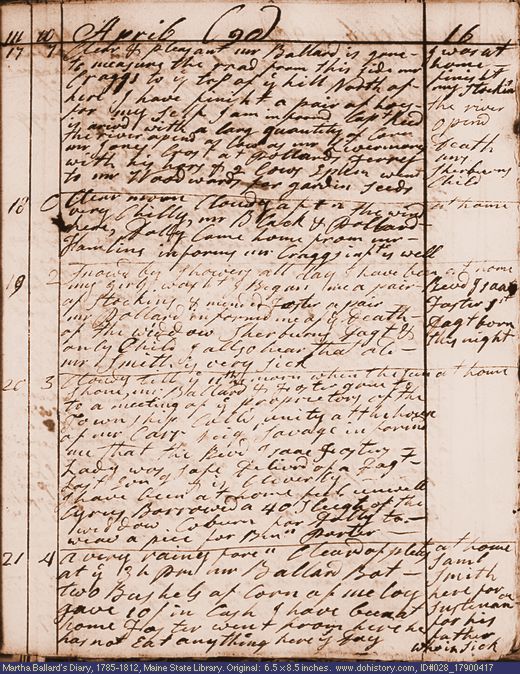 m D April (90) 16
17 7 Clear & pleasant mr Ballard is gone I was at
to measure the road from this side mr home
Craggs to ye top of ye hill North of finisht
here I have finisht a pair of hoes my Stockin
for my self I am informd Capt the river
is arivd with a larg quantity of Corn opend
the river opend Death
mr Jones Crost mr Livermore mrs
with his hors & 2 Cows Ephm went Sherburns
to mr Woodwards for garden seeds Child
18 Clear morn Cloudy aftn the wind at home
very Chilly, mr Black & Pollard
here, Dolly Came home from mr
Hamlins informs mr Craggs inft is well
19 2 Snowd by Showers all day I have been at home
my girls washt I Began me a pair Revd Isaac
of Stockins & mended a pair Foster 1st
mr Pollard informd me of ye Death Dagt born
of the widdow Sherburns Dagt & This night
only Child I allso hear that ole
mr Smith is very sick
20 3 Cloudy till ye morn when the sun at home
shone, mr Ballard & Foster gone to
to a meeting of ye proprietors of the
Township Calld unity at the house
of mr Carr mrs Savage informd
me that the Revd Isaac Fosters
Lady was safe Delivrd of a Dagt
last Evng & is Cleverly
I have been at home felt unwell
Cyrus Borrowed a 40 Sleigh of the
widdow Coburn for Dolly to
weav a piece for Benn Porter
21 4 a very rainy fore n Cleard of pleast at home
at ye 3 h pm mr Ballard Bot Saml
two Bushels of Corn of mr Smith
gave 10/ in Cash I have been at here for
home Foster went from here he
has not Eat any thing here to Day for his
father
who is Sick
Martha Ballard's Diary, 1785-1812, Maine State Library. Original: 6.5 x 8.5 inches. www.dohistory.com, ID#028_17900417